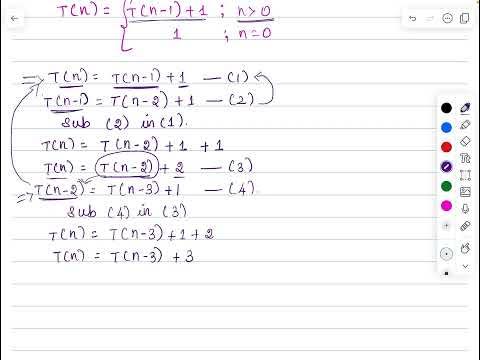 T(n) = { T(n-1)+1 ; n>0
1 ; n=0
⇒ T(n) = T(n-1)+1 — (1)
T(n-1) = T(n-2)+1 — (2)
Sub (2) in (1).
T(n) = T(n-2)+1 +1
T(n) = T(n-2) + 2 — (3)
⇒ T(n-2) = T(n-3)+1 — (4).
Sub (4) in (3)
T(n) = T(n-3)+1+2
T(n) = T(n-3) +3